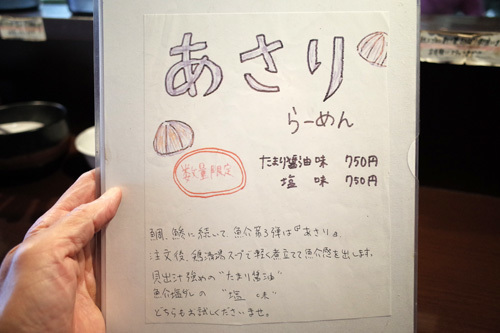 あさり
らーめん
数量限定
たまり醤油味 750円
塩 味 750円
鯛、鯵に続いて魚介第3弾は『あさり』。
注文後、鶏清湯スープで軽く煮立てて魚介感を出します。
貝出汁強めの"たまり醤油"
魚介塩ダレの "塩 味"
どちらもお試しくださいませ。